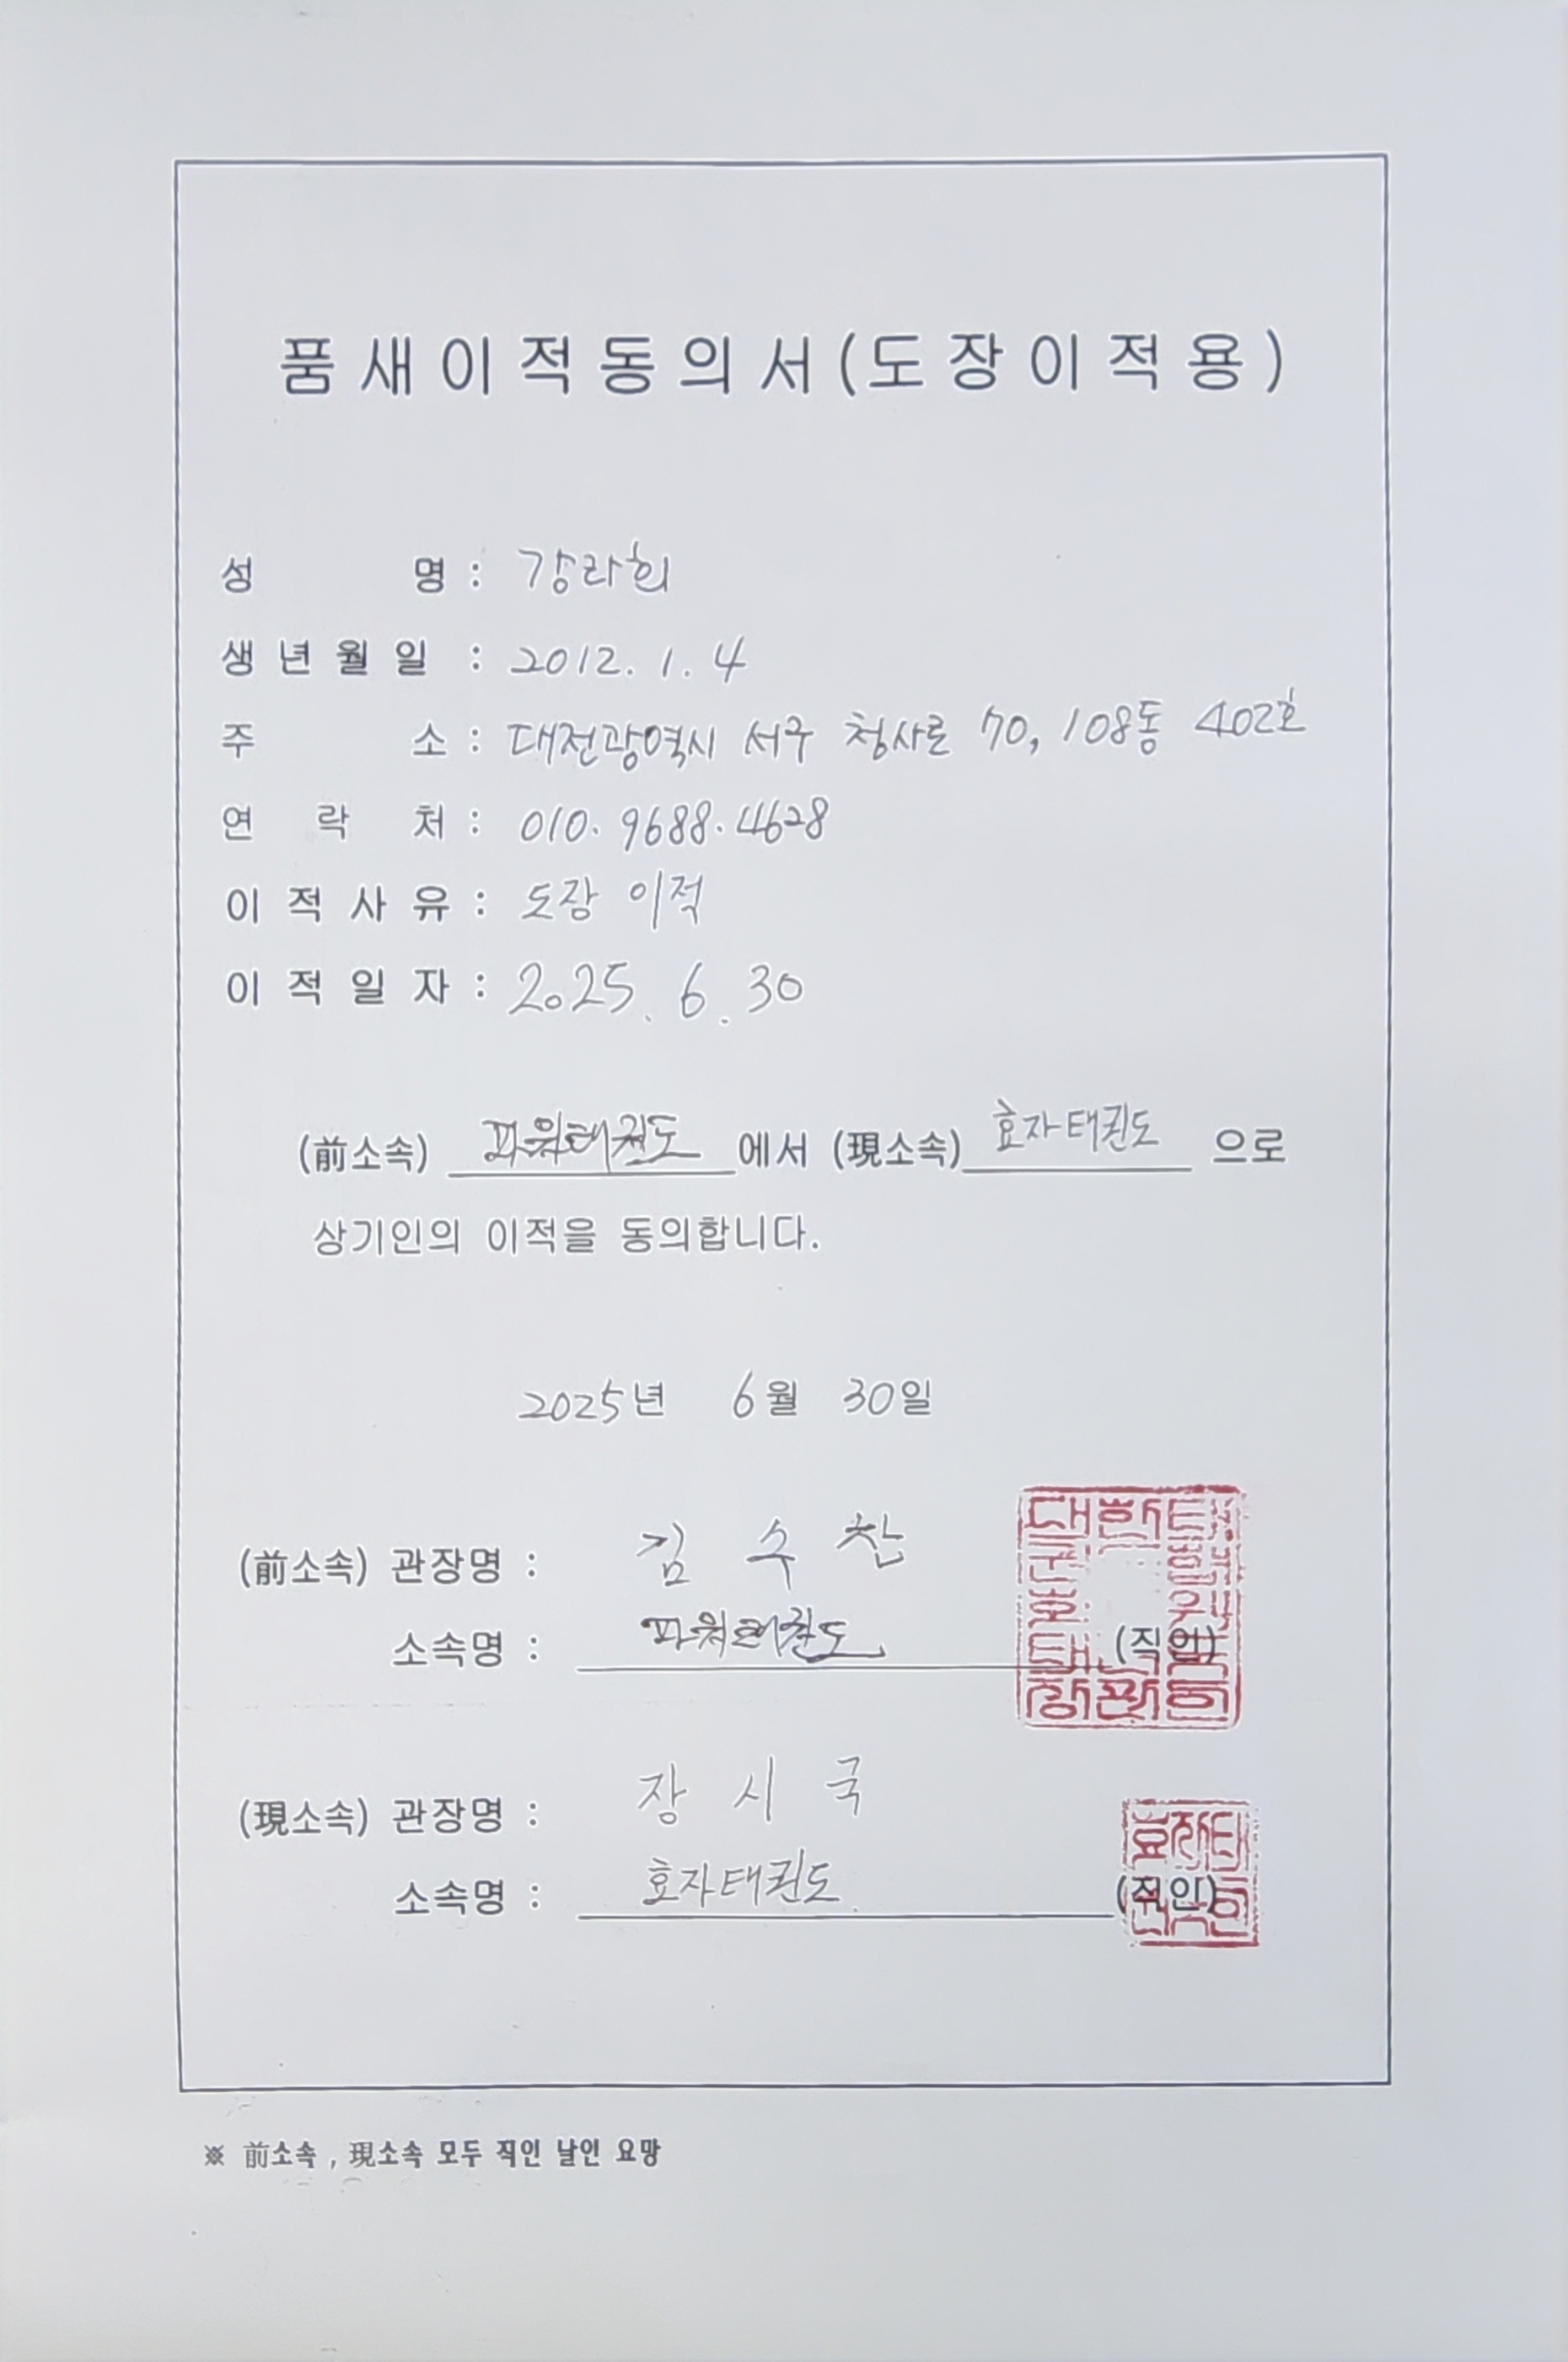 품새이적동의서(도장이적용)
성 명 : 강라희
생년월일 : 2012. 1. 4
주 소 : 대전광역시 서구 청사로 70, 108동 402호
연 락 처 : 010. 9688. 4628
이 적 사 유 : 도장 이적
이 적 일 자 : 2025. 6. 30
(前소속) 파워태권도 에서 (現소속) 효자태권도 으로
상기인의 이적을 동의합니다.
2025년 6월 30일
(前소속) 관장명 : 김 수 찬
소속명 : 파워태권도 (직인)
(現소속) 관장명 : 장 시 국
소속명 : 효자태권도 (직인)
※ 前소속 , 現소속 모두 직인 날인 요망